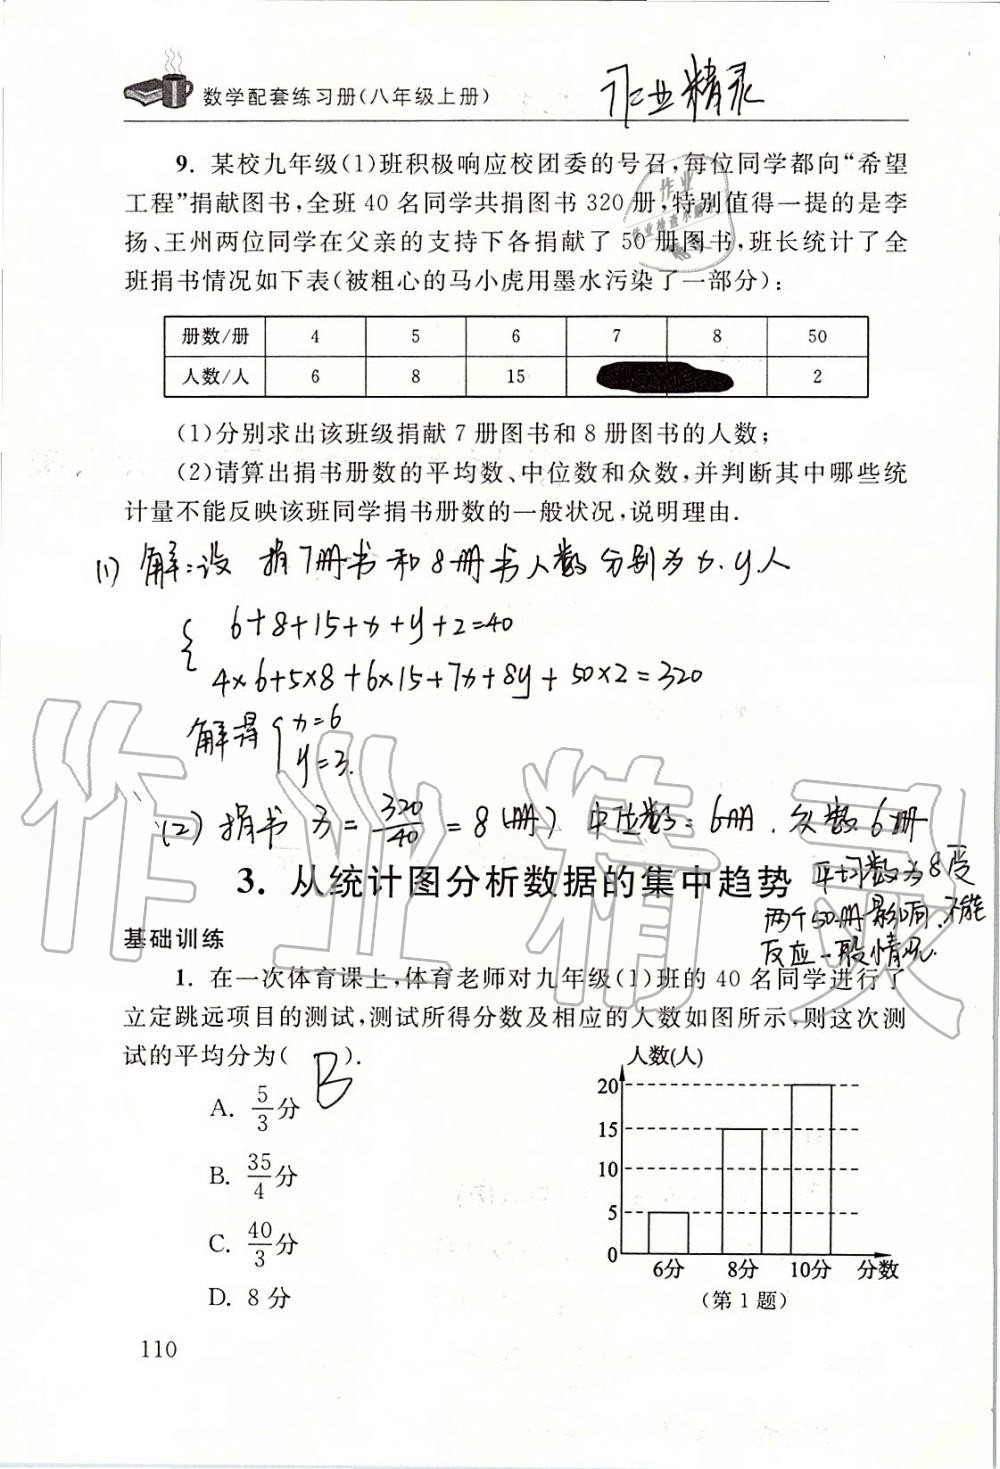 数学配套练习册(八年级上册)
作业精灵
9. 某校九年级(1)班积极响应校团委的号召,每位同学都向“希望
工程”捐献图书,全班 40 名同学共捐图书 320 册,特别值得一提的是李
扬、王州两位同学在父亲的支持下各捐献了 50 册图书,班长统计了全
班捐书情况如下表(被粗心的马小虎用墨水污染了一部分):
册数/册 4 5 6 7 8 50
人数/人 6 8 15 2
(1)分别求出该班级捐献 7 册图书和 8 册图书的人数;
(2)请算出捐书册数的平均数、中位数和众数,并判断其中哪些统
计量不能反映该班同学捐书册数的一般状况,说明理由.
(1) 解:设 捐7册书和8册书人数分别为x.y人
{ 6+8+15+x+y+2=40
4×6+5×8+6×15+7x+8y+50×2=320
解得{ x=6
y=3.
(2) 捐书 x̄ = 320/40 = 8(册) 中位数:6册. 众数6册
平均数为8受
两个50册影响.不能
反应一般情况.
3. 从统计图分析数据的集中趋势
基础训练
1. 在一次体育课上,体育老师对九年级(1)班的 40 名同学进行了
立定跳远项目的测试,测试所得分数及相应的人数如图所示,则这次测
试的平均分为( B ).
A. 5/3 分
B. 35/4 分
C. 40/3 分
D. 8 分
人数(人)
20
15
10
5
0
6分 8分 10分 分数
(第 1 题)
110
作业精灵